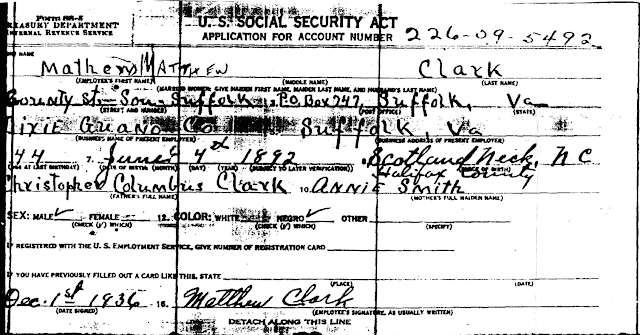 Form SS-5
TREASURY DEPARTMENT
INTERNAL REVENUE SERVICE
U. S. SOCIAL SECURITY ACT
APPLICATION FOR ACCOUNT NUMBER 226-09-5492
Mathews MATTHEW Clark
(EMPLOYEE'S FIRST NAME) (MIDDLE NAME) (LAST NAME)
(MARRIED WOMEN: GIVE MAIDEN FIRST NAME, MAIDEN LAST NAME, AND HUSBAND'S LAST NAME)
County St. Sou. Suffolk P.O. Box 747, Suffolk, Va
(STREET AND NUMBER) (POST OFFICE) (STATE)
Dixie Guano Co Suffolk, Va
(BUSINESS NAME OF PRESENT EMPLOYER) (BUSINESS ADDRESS OF PRESENT EMPLOYER)
44 7. June 4th 1892 Scotland Neck, NC
(AGE AT LAST BIRTHDAY) (DATE OF BIRTH: (MONTH) (DAY) (YEAR) (SUBJECT TO LATER VERIFICATION) Halifax County
Christopher Columbus Clark 10. ANNIE Smith
(FATHER'S FULL NAME) (MOTHER'S FULL MAIDEN NAME)
SEX: MALE ✓ FEMALE 12. COLOR: WHITE NEGRO ✓ OTHER
(CHECK (✓) WHICH) (CHECK (✓) WHICH) (SPECIFY)
IF REGISTERED WITH THE U. S. EMPLOYMENT SERVICE, GIVE NUMBER OF REGISTRATION CARD
IF YOU HAVE PREVIOUSLY FILLED OUT A CARD LIKE THIS, STATE
(PLACE) (DATE)
Dec. 1st 1936 16. Matthew Clark
(DATE SIGNED) (EMPLOYEE'S SIGNATURE, AS USUALLY WRITTEN)
DETACH ALONG THIS LINE